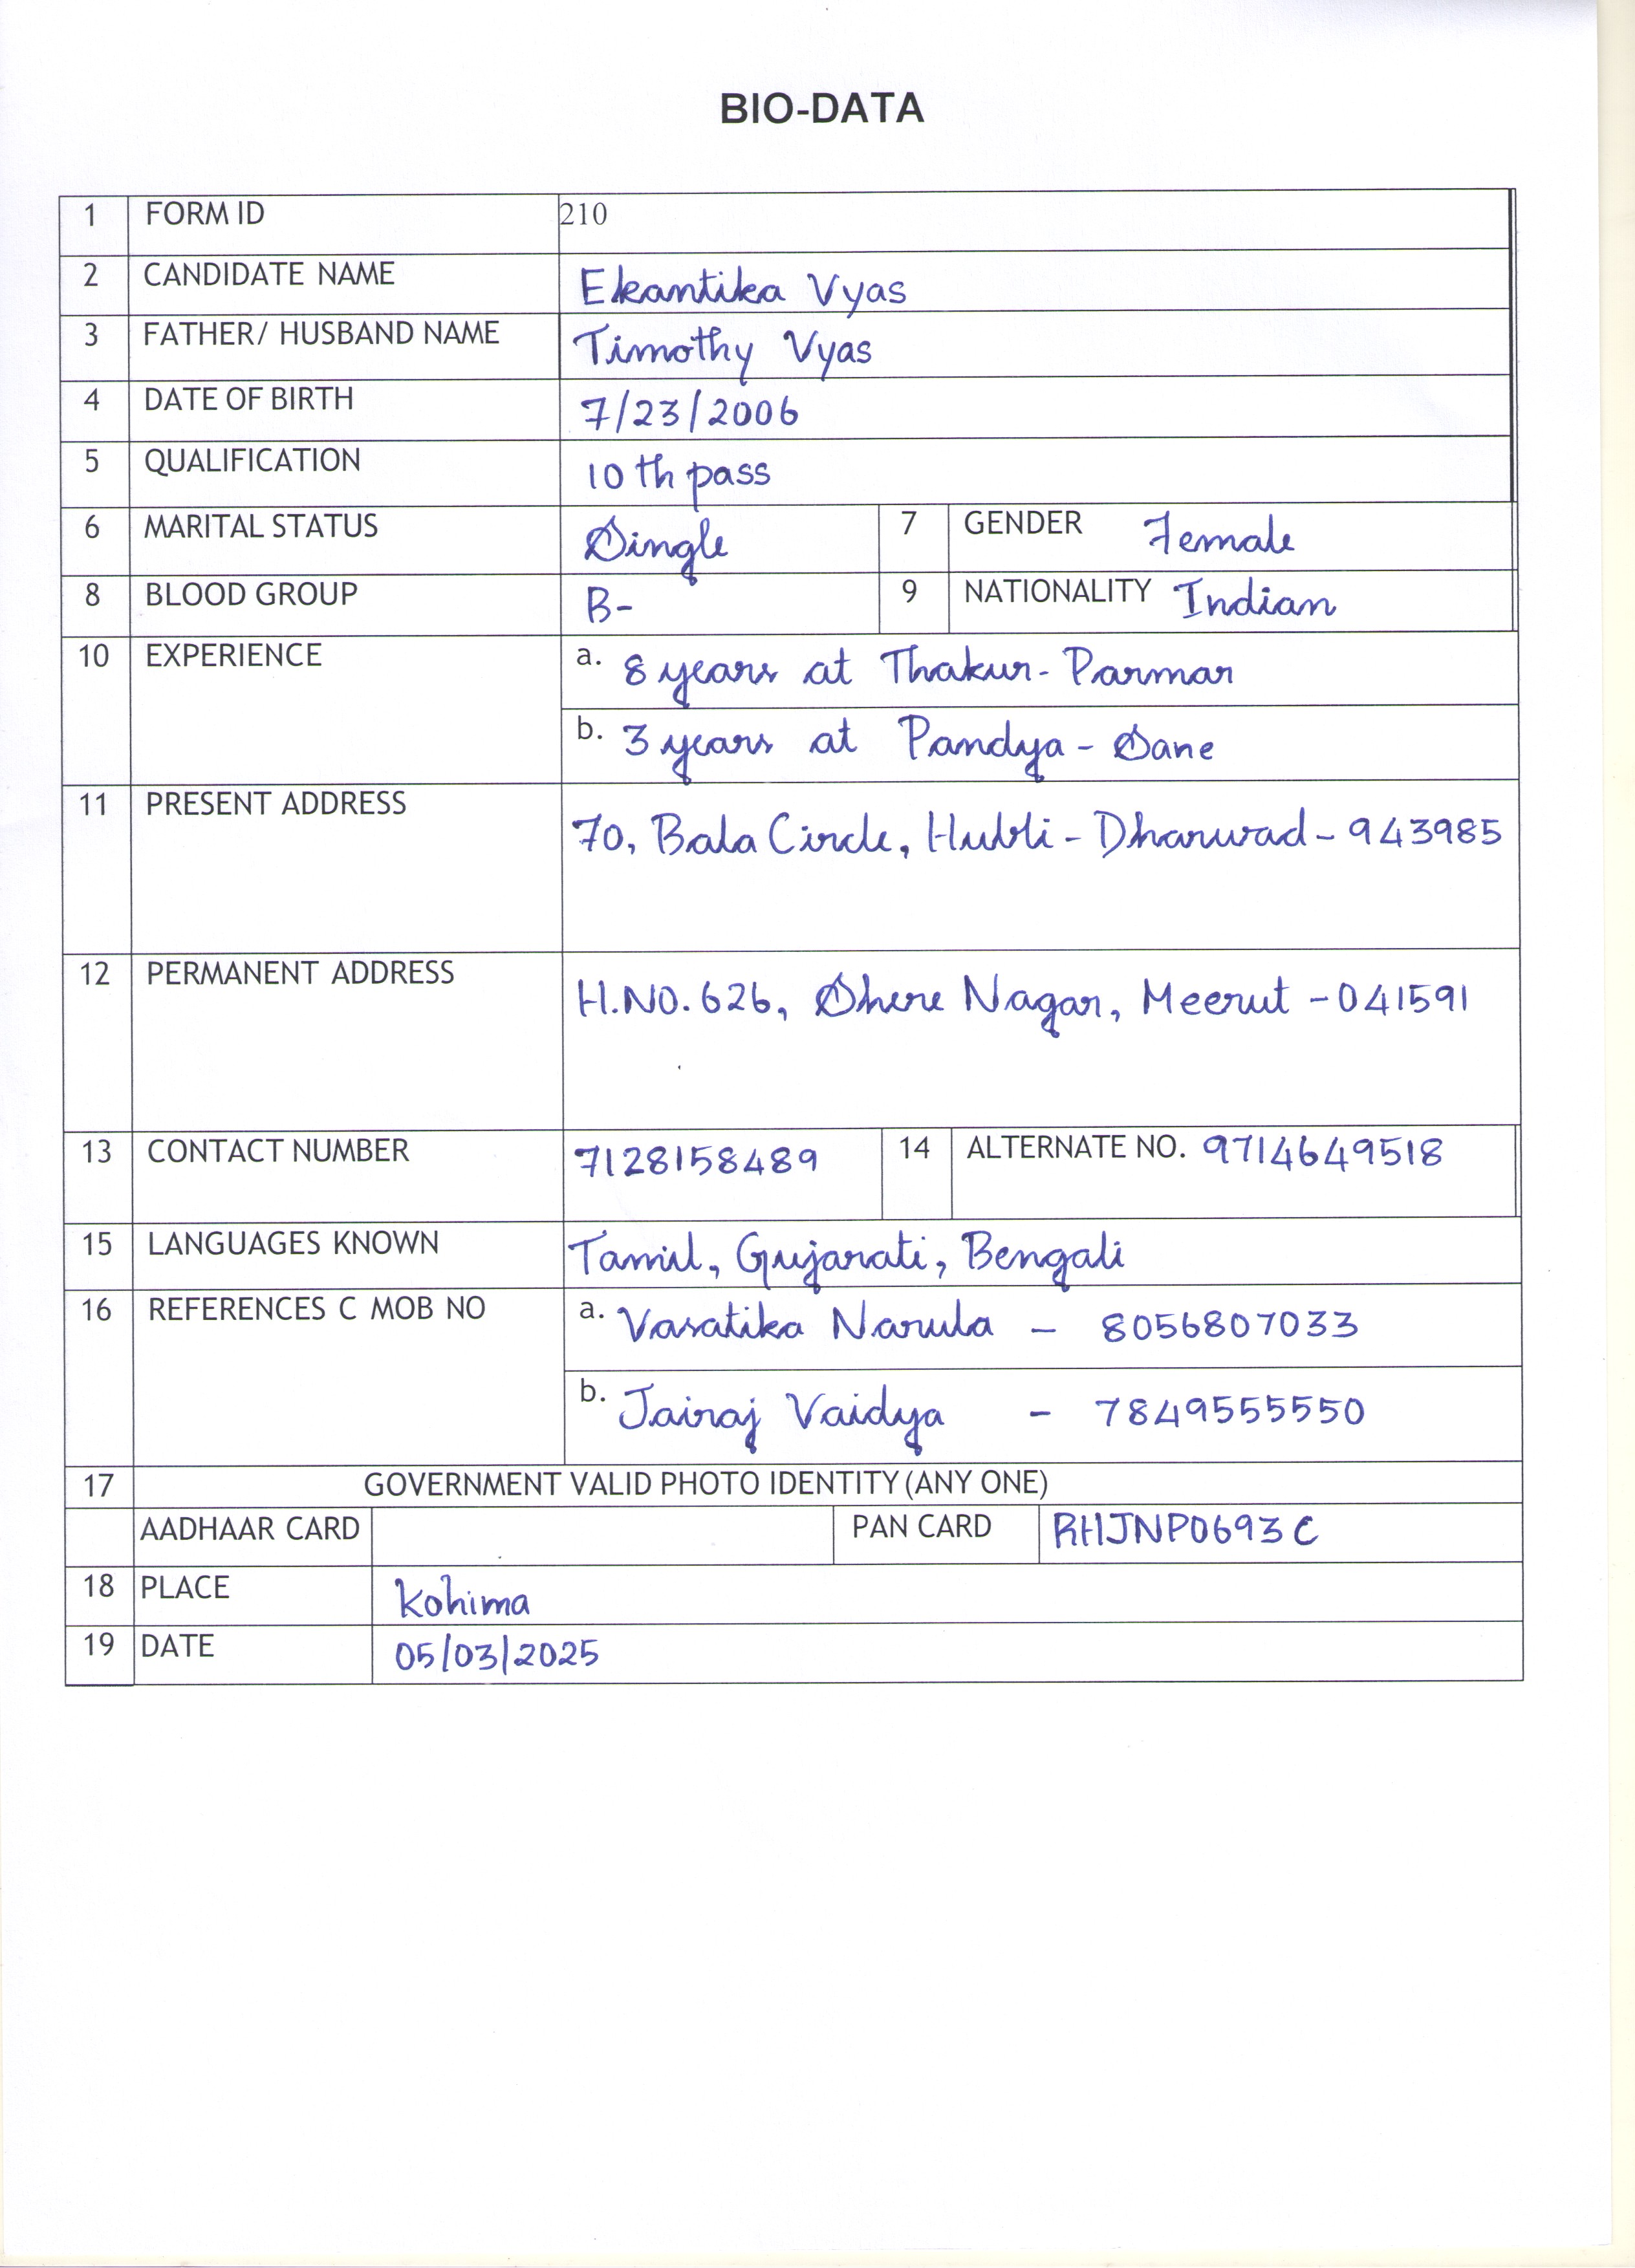 BIO-DATA
1 FORM ID 210
2 CANDIDATE NAME Ekantika Vyas
3 FATHER/ HUSBAND NAME Timothy Vyas
4 DATE OF BIRTH 7/23/2006
5 QUALIFICATION 10 th pass
6 MARITAL STATUS Single 7 GENDER Female
8 BLOOD GROUP B- 9 NATIONALITY Indian
10 EXPERIENCE a. 8 years at Thakur-Parmar
b. 3 years at Pandya - Sane
11 PRESENT ADDRESS 70, Bala Circle, Hubli - Dharwad - 943985
12 PERMANENT ADDRESS H.NO. 626, Shere Nagar, Meerut - 041591
13 CONTACT NUMBER 7128158489 14 ALTERNATE NO. 9714649518
15 LANGUAGES KNOWN Tamil, Gujarati, Bengali
16 REFERENCES C MOB NO a. Vasatika Narula - 8056807033
b. Jairaj Vaidya - 7849555550
17 GOVERNMENT VALID PHOTO IDENTITY (ANY ONE)
AADHAAR CARD PAN CARD RHJNP0693C
18 PLACE Kohima
19 DATE 05/03/2025